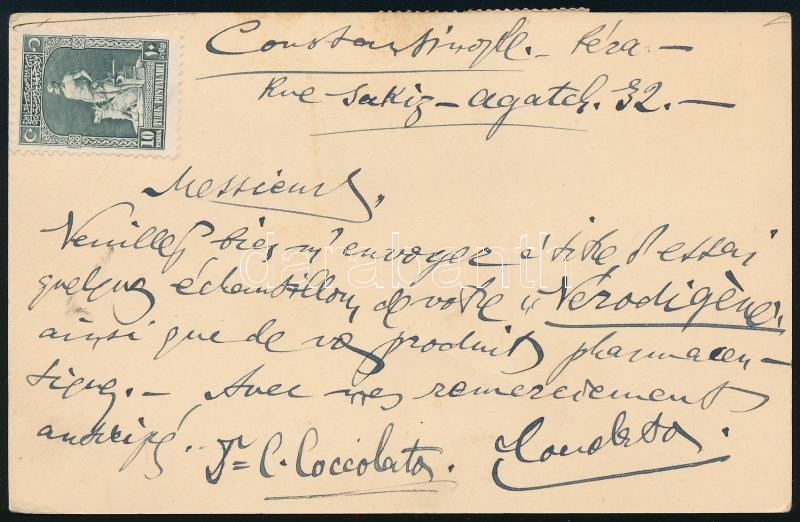 Constantinople. Péra —
Rue Sakiz-Agatch. 32. —
Messieurs,
Veuillez bien m'envoyer à titre d'essai
quelques échantillons de votre "Vérodigène"
ainsi que de vos produits pharmaceu-
tiques. — Avec mes remerciements
anticipés.
Dr C. Coccolatos.
10
TURK POSTALARI
darabanth